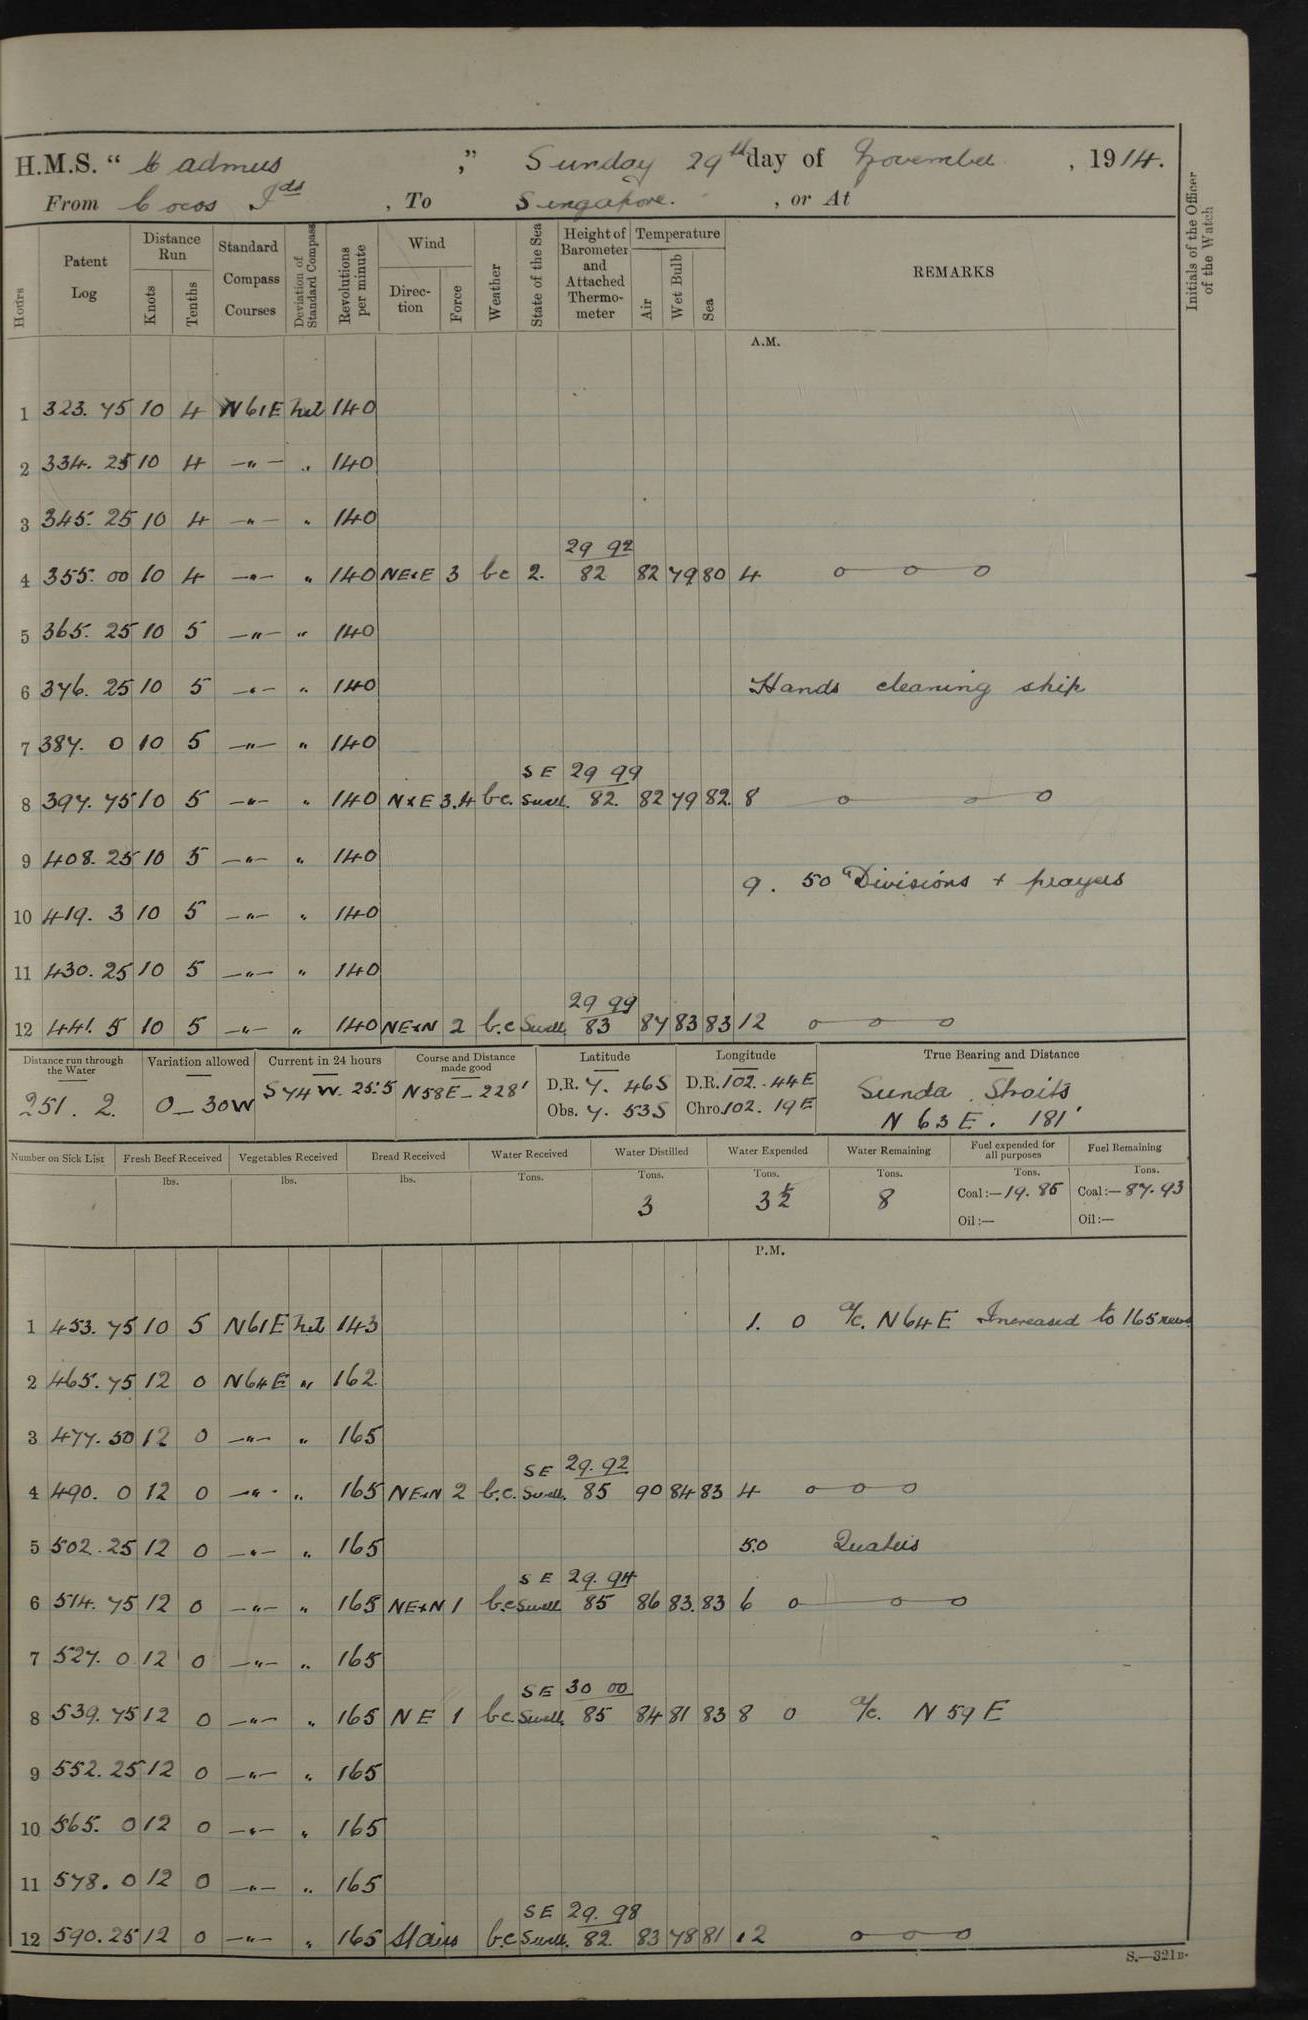 H.M.S. “ Cadmus ,” Sunday 29th day of November , 1914.
From Cocos Ids , To Singapore. , or At
Initials of the Officer of the Watch
Hours
Patent Log
Distance Run
Knots
Tenths
Standard Compass Courses
Deviation of Standard Compass
Revolutions per minute
Wind
Direction
Force
Weather
State of the Sea
Height of Barometer and Attached Thermometer
Temperature
Air
Wet Bulb
Sea
REMARKS
A.M.
1 323.75 10 4 N61E 140
2 334.25 10 4 —"— " 140
3 345.25 10 4 —"— " 140
29 92
4 355.00 10 4 —"— " 140 NExE 3 bc 2. 82 82 79 80 4 o—o—o
5 365.25 10 5 —"— " 140
6 376.25 10 5 —"— " 140 Hands cleaning ship
7 387. 0 10 5 —"— " 140
SE 29 99
8 397.75 10 5 —"— " 140 NxE 3.4 bc. Swell. 82. 82 79 82. 8 o—o—o
9 408.25 10 5 —"— " 140
9. 50 Divisions + prayers
10 419. 3 10 5 —"— " 140
11 430.25 10 5 —"— " 140
29 99
12 441. 5 10 5 —"— " 140 NExN 2 b.c Swell. 83 87 83 83 12 o—o—o
Distance run through the Water
251. 2.
Variation allowed
0—30W
Current in 24 hours
S74W. 25.'5
Course and Distance made good
N58E—228'
Latitude
D.R. 7. 46S
Obs. 7. 53S
Longitude
D.R. 102. 44E
Chro. 102. 19E
True Bearing and Distance
Sunda Straits
N 63 E. 181'
Number on Sick List
Fresh Beef Received
lbs.
Vegetables Received
lbs.
Bread Received
lbs.
Water Received
Tons.
Water Distilled
Tons.
3
Water Expended
Tons.
Water Remaining
Tons.
8
Fuel expended for all purposes
Tons.
Coal:—19.85
Oil:—
Fuel Remaining
Tons.
Coal:—87.93
Oil:—
P.M.
1 453.75 10 5 N61E 143 1. 0 a/c. N64E Increased to 165 revs
2 465.75 12 0 N64E " 162
3 477.50 12 0 —"— " 165
SE 29.92
4 490. 0 12 0 —"— " 165 NExN 2 b.c. Swell. 85 90 84 83 4 o—o—o
5 502.25 12 0 —"— " 165 5.0 Quarters
SE 29.94
6 514.75 12 0 —"— " 165 NExN 1 b.c Swell 85 86 83. 83 6 o—o—o
7 527. 0 12 0 —"— " 165
SE 30 00
8 539.75 12 0 —"— " 165 NE 1 b.c. Swell. 85 84 81 83 8 0 a/c. N 59 E
9 552.25 12 0 —"— " 165
10 565. 0 12 0 —"— " 165
11 578. 0 12 0 —"— " 165
SE 29. 98
12 590.25 12 0 —"— " 165 b.c Swell. 82. 83 78 81 12 o—o—o
S.—321B.